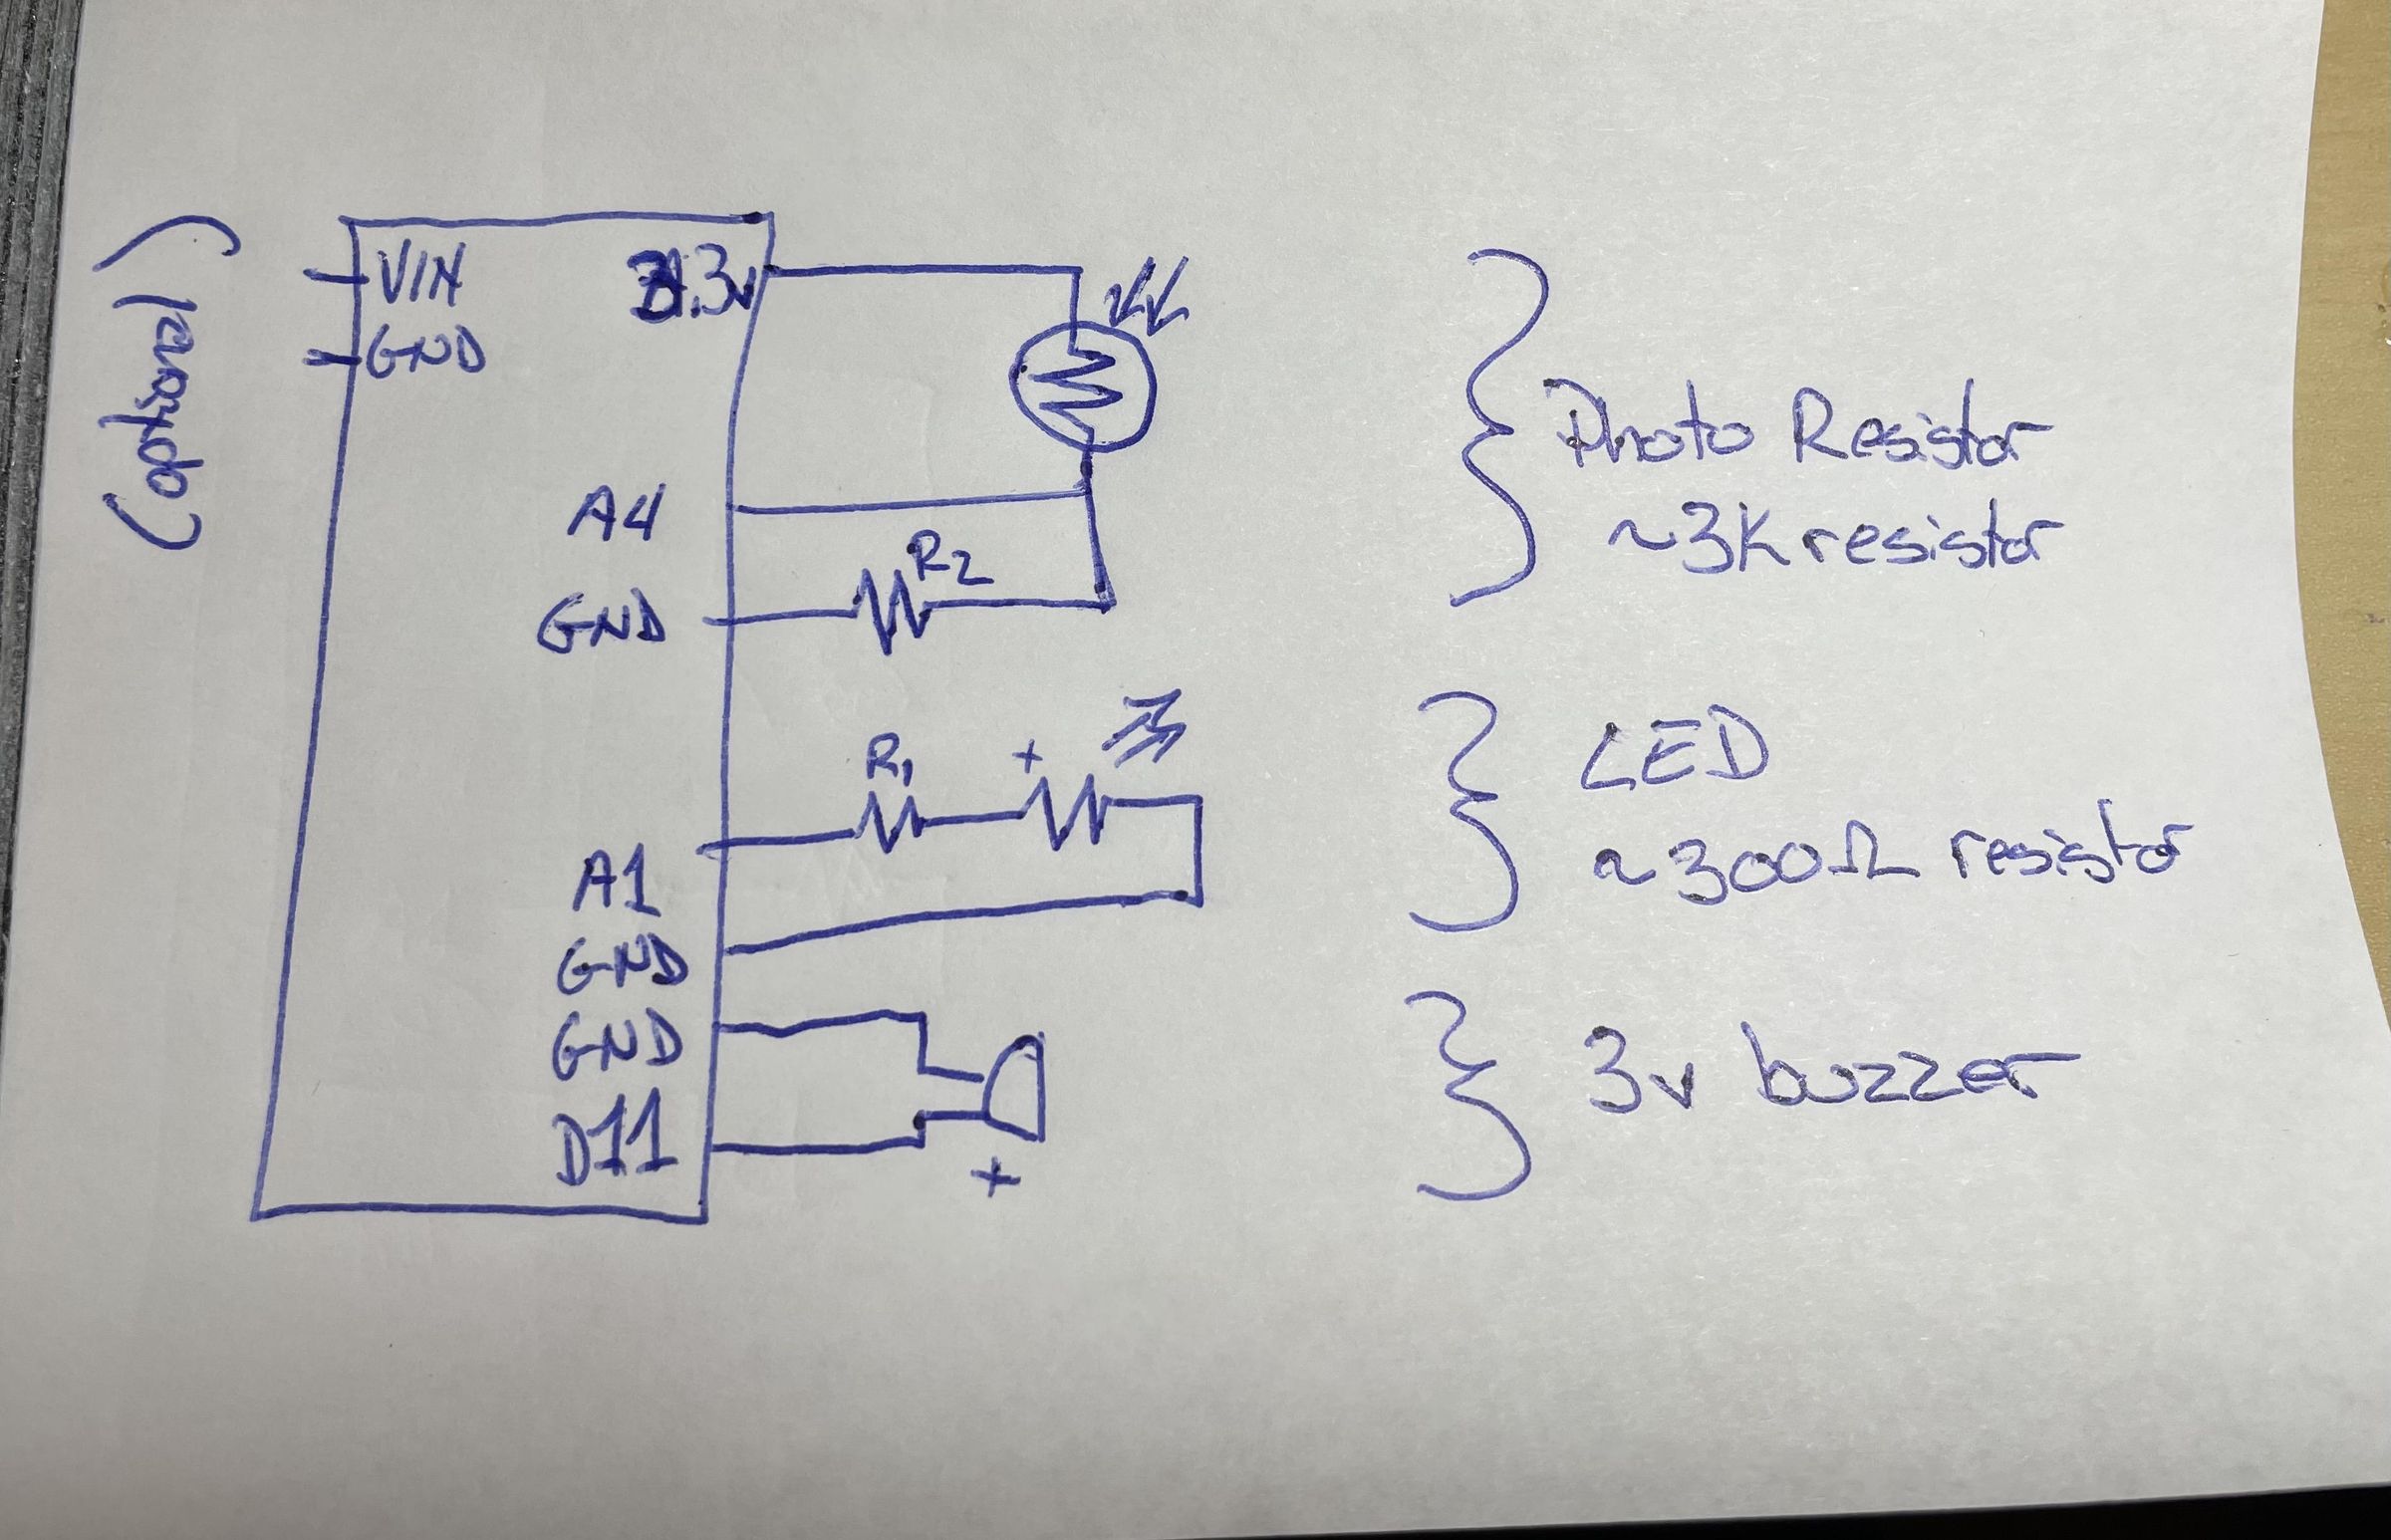 (optional)
VIN
3.3v
GND
A4
R2
GND
Photo Resistor
~3K resistor
R1
+
A1
GND
LED
~300Ω resistor
GND
D11
+
3v buzzer